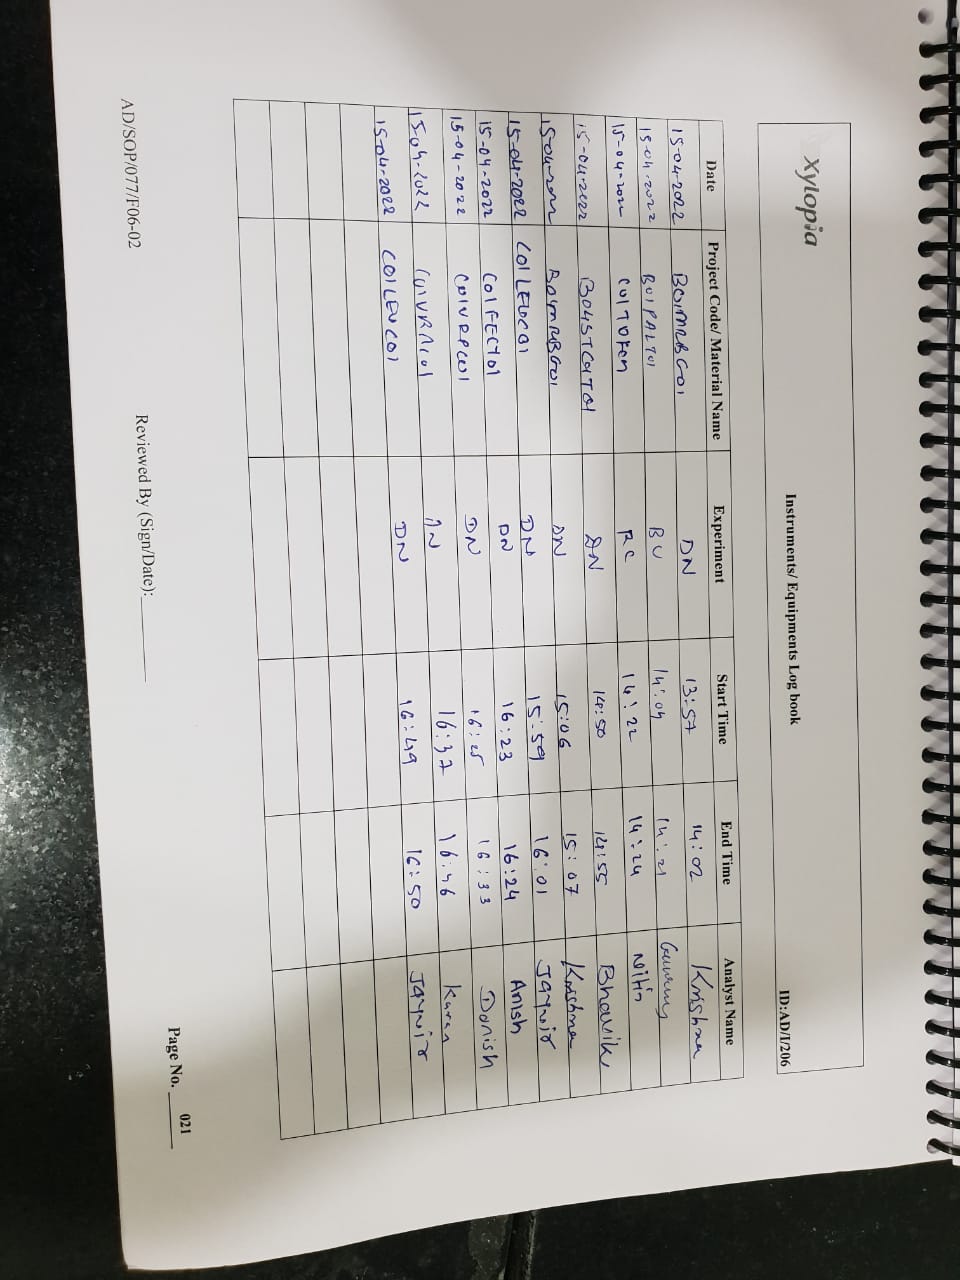 Xylopia
Instruments/ Equipments Log book
ID:AD/I/206
Date Project Code/ Material Name Experiment Start Time End Time Analyst Name
15-04-2022 B01MRBG01 DN 13:57 14:02 Krishna
15-04-2022 B01PALT01 BU 14:09 14:21
15-04-2022 C01TOFCM RC 14:22 14:24 Nitin
15-04-2022 B04STCAT01 DN 14:50 14:55 Bhavik
15-04-2022 DN 15:06 15:07 Krishna
15-04-2022 DN 15:59 16:01 Jaynir
15-04-2022 C01FECT01 DN 16:23 16:24 Anish
15-04-2022 C01VRPC01 DN 16:25 16:33 Danish
15-04-2022 16:37 16:46 Karan
15-04-2022 C01LEVC01 DN 16:49 16:50 Jaynir
AD/SOP/077/F06-02
Reviewed By (Sign/Date):
Page No. 021